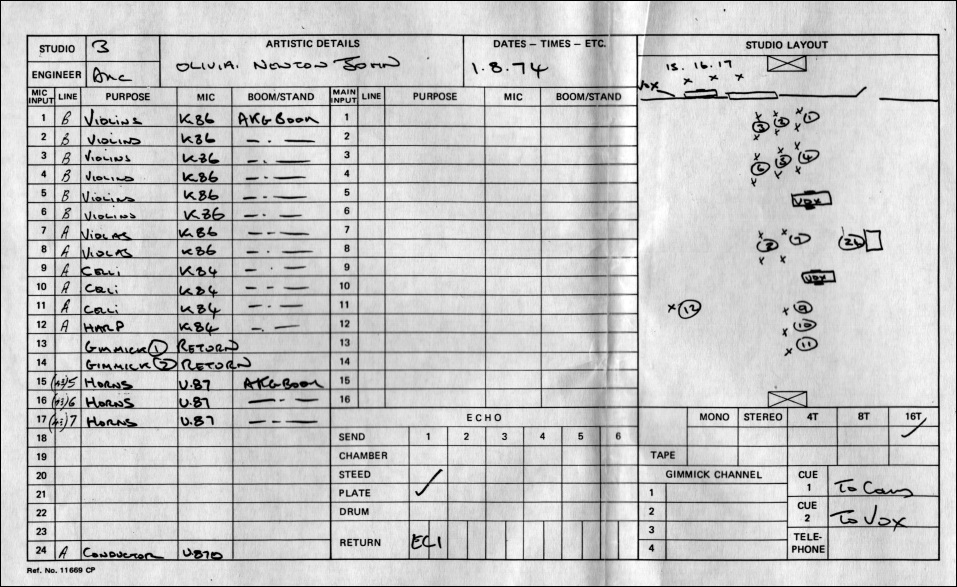 STUDIO 3 ARTISTIC DETAILS DATES – TIMES – ETC. STUDIO LAYOUT
OLIVIA. NEWTON JOHN 1.8.74
ENGINEER
MIC INPUT LINE PURPOSE MIC BOOM/STAND MAIN INPUT LINE PURPOSE MIC BOOM/STAND
1 B VIOLINS K.86 AKG BOOM 1
2 B VIOLINS K86 —·— 2
3 B VIOLINS K86 —·— 3
4 B VIOLINS K86 —·— 4
5 B VIOLINS K86 —·— 5
6 B VIOLINS K86 —·— 6
7 A VIOLAS K86 —·— 7
8 A VIOLAS K86 —·— 8
9 A CELLI K84 —·— 9
10 A CELLI K84 —·— 10
11 A CELLI K84 —·— 11
12 A HARP K84 —·— 12
13 GIMMICK 1 RETURN 13
14 GIMMICK 2 RETURN 14
15 5 HORNS U.87 AKG BOOM 15
16 6 HORNS U.87 —·— 16
17 7 HORNS U.87 —·—
18
19
20
21
22
23
24 A CONDUCTOR U.87
ECHO
SEND 1 2 3 4 5 6
CHAMBER
STEED
PLATE ✓
DRUM
RETURN EC1
15. 16. 17
x x x
VOX
x x x
2 3 1
x x x
6 5 4
VOX
8 7 24
VOX
x 12 x 9
x 10
x 11
MONO STEREO 4T 8T 16T
✓
TAPE
GIMMICK CHANNEL
1
2
3
4
CUE 1 To Cans
CUE 2 To VOX
TELE-PHONE
Ref. No. 11669 CP